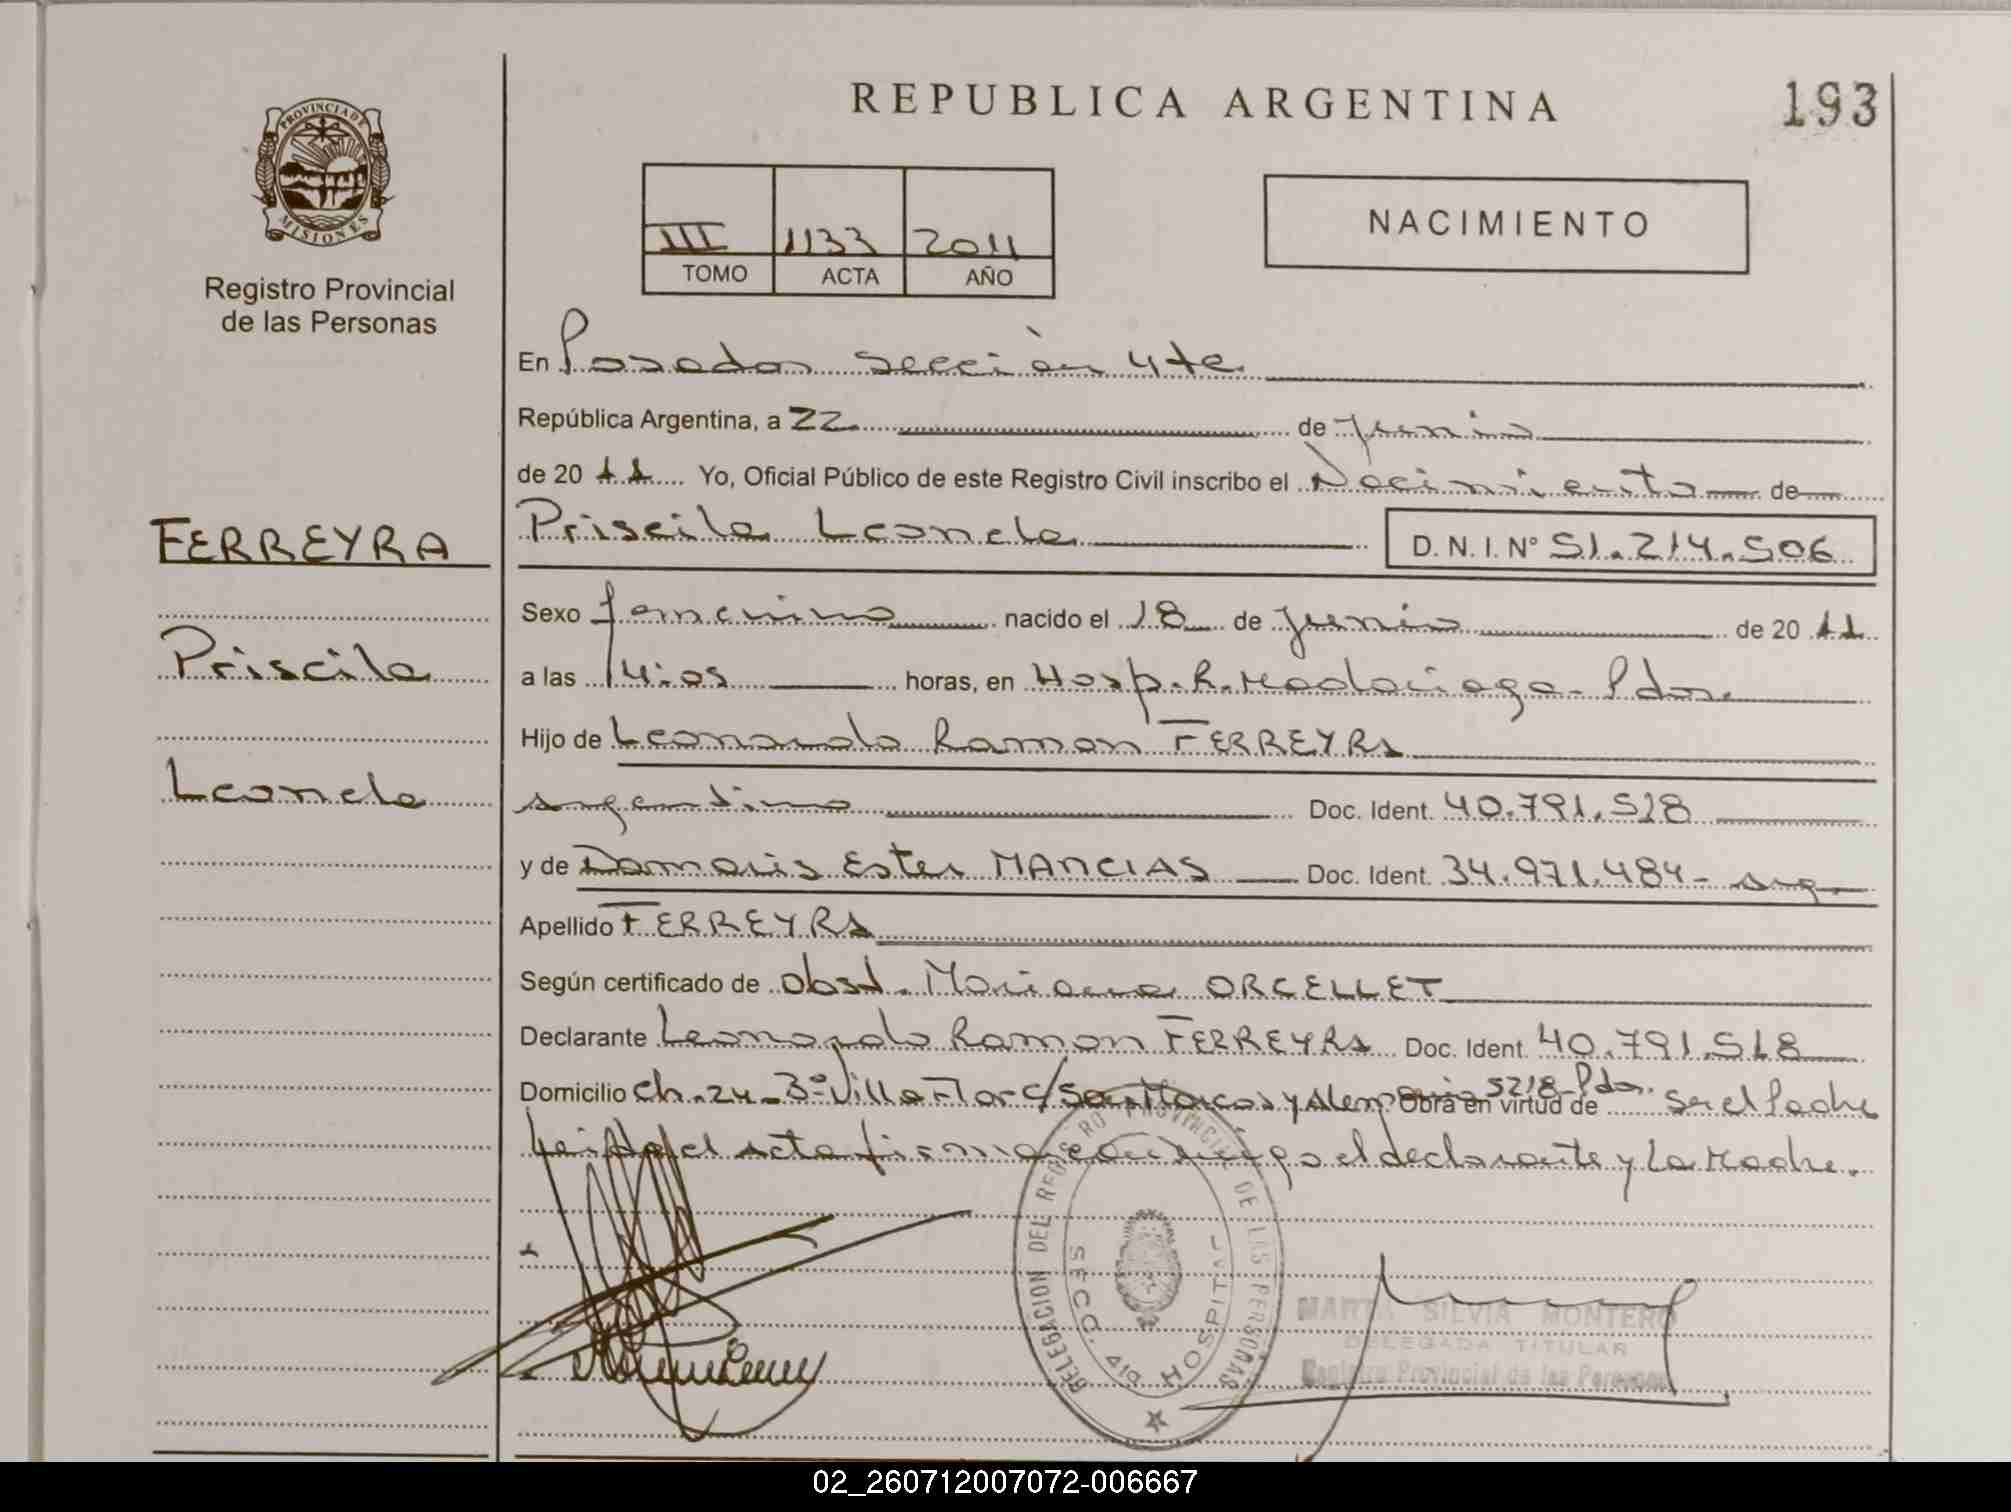 REPUBLICA ARGENTINA
193
PROVINCIA DE
MISIONES
Registro Provincial
de las Personas
III 1133 2011
TOMO ACTA AÑO
NACIMIENTO
En Posadas sección 4ta
República Argentina, a 22 de Junio
de 20 11 Yo, Oficial Público de este Registro Civil inscribo el Nacimiento de
Priscila Leonela D. N. I. N° 51.214.506
FERREYRA
Priscila
Leonela
Sexo femenino nacido el 18 de Junio de 20 11
a las 14:05 horas, en Hosp. R. Madariaga - Pdas.
Hijo de Leonardo Ramon FERREYRA
argentino Doc. Ident. 40.791.518
y de Damaris Ester MANCIAS Doc. Ident. 34.971.484 - arg.
Apellido FERREYRA
Según certificado de obst. Mariana ORCELLET
Declarante Leonardo Ramon FERREYRA Doc. Ident. 40.791.518
Domicilio Ch. 24 - 3° Villa Flor c/ San Marcos y Alemania 5218 - Pdas. Obra en virtud de ser el Padre
Leida el acta firma conmigo el declarante y la Madre.
DELEGACION DEL REGISTRO PROVINCIAL DE LAS PERSONAS
SECC. 4ta HOSPITAL
MARTA SILVIA MONTERO
DELEGADA TITULAR
Registro Provincial de las Personas
02_260712007072-006667